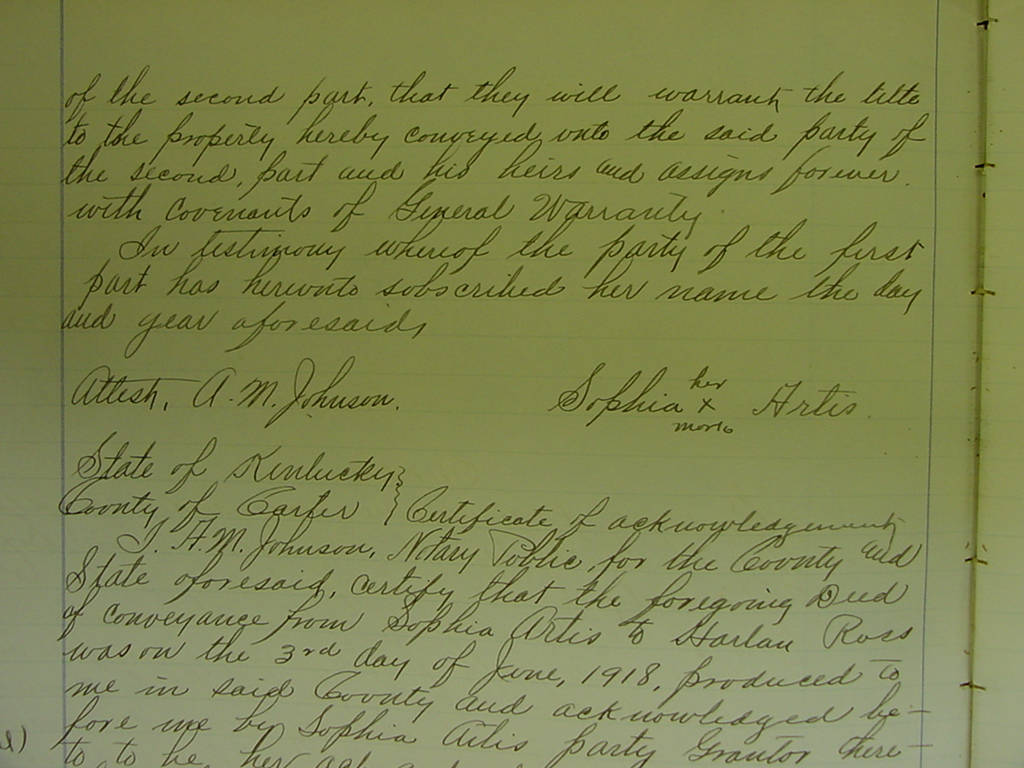 of the second part, that they will warrant the title
to the property hereby conveyed unto the said party of
the second, part and his heirs and assigns forever.
with covenants of General Warranty.
In testimony whereof the party of the first
part has hereunto subscribed her name the day
and year aforesaid,
Attest, A. M. Johnson.
her
Sophia x Artis.
mark
State of Kentucky }
County of Carter } Certificate of acknowledgement
I, A. M. Johnson, Notary Public for the County and
State aforesaid, certify that the foregoing Deed
of conveyance from Sophia Artis to Harlan Ross
was on the 3rd day of June, 1918, produced to
me in said County and acknowledged be-
fore me by Sophia Artis party Grantor there-
to to be her act